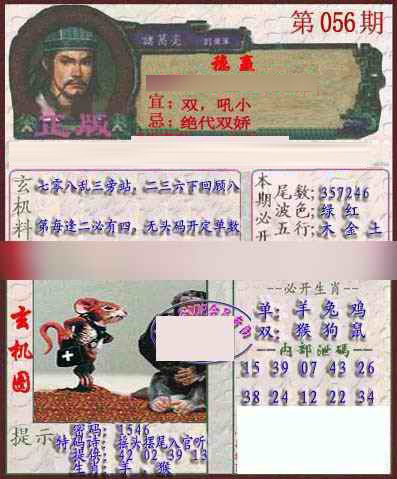 第056期
諸葛亮
稳赢
正版
宜：双，吼小
忌：绝代双娇
玄机料
七零八乱三旁站，二三六下回顾八
第每逢二必有四，无头码开定单数
本期必开
尾数；357246
波色；绿 红
五行；木 金 土
玄机图
--必开生肖--
单：羊 兔 鸡
双：猴 狗 鼠
--内部泄码--
15 39 07 43 26
38 24 12 22 34
提示
密码；1546
特码诗；摇头摆尾入官听
提供；42 02 39 13
生肖；羊、猴